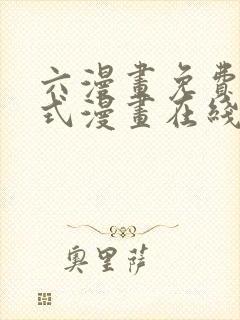 六漫畫免費
式漫畫在綫
奧里薩